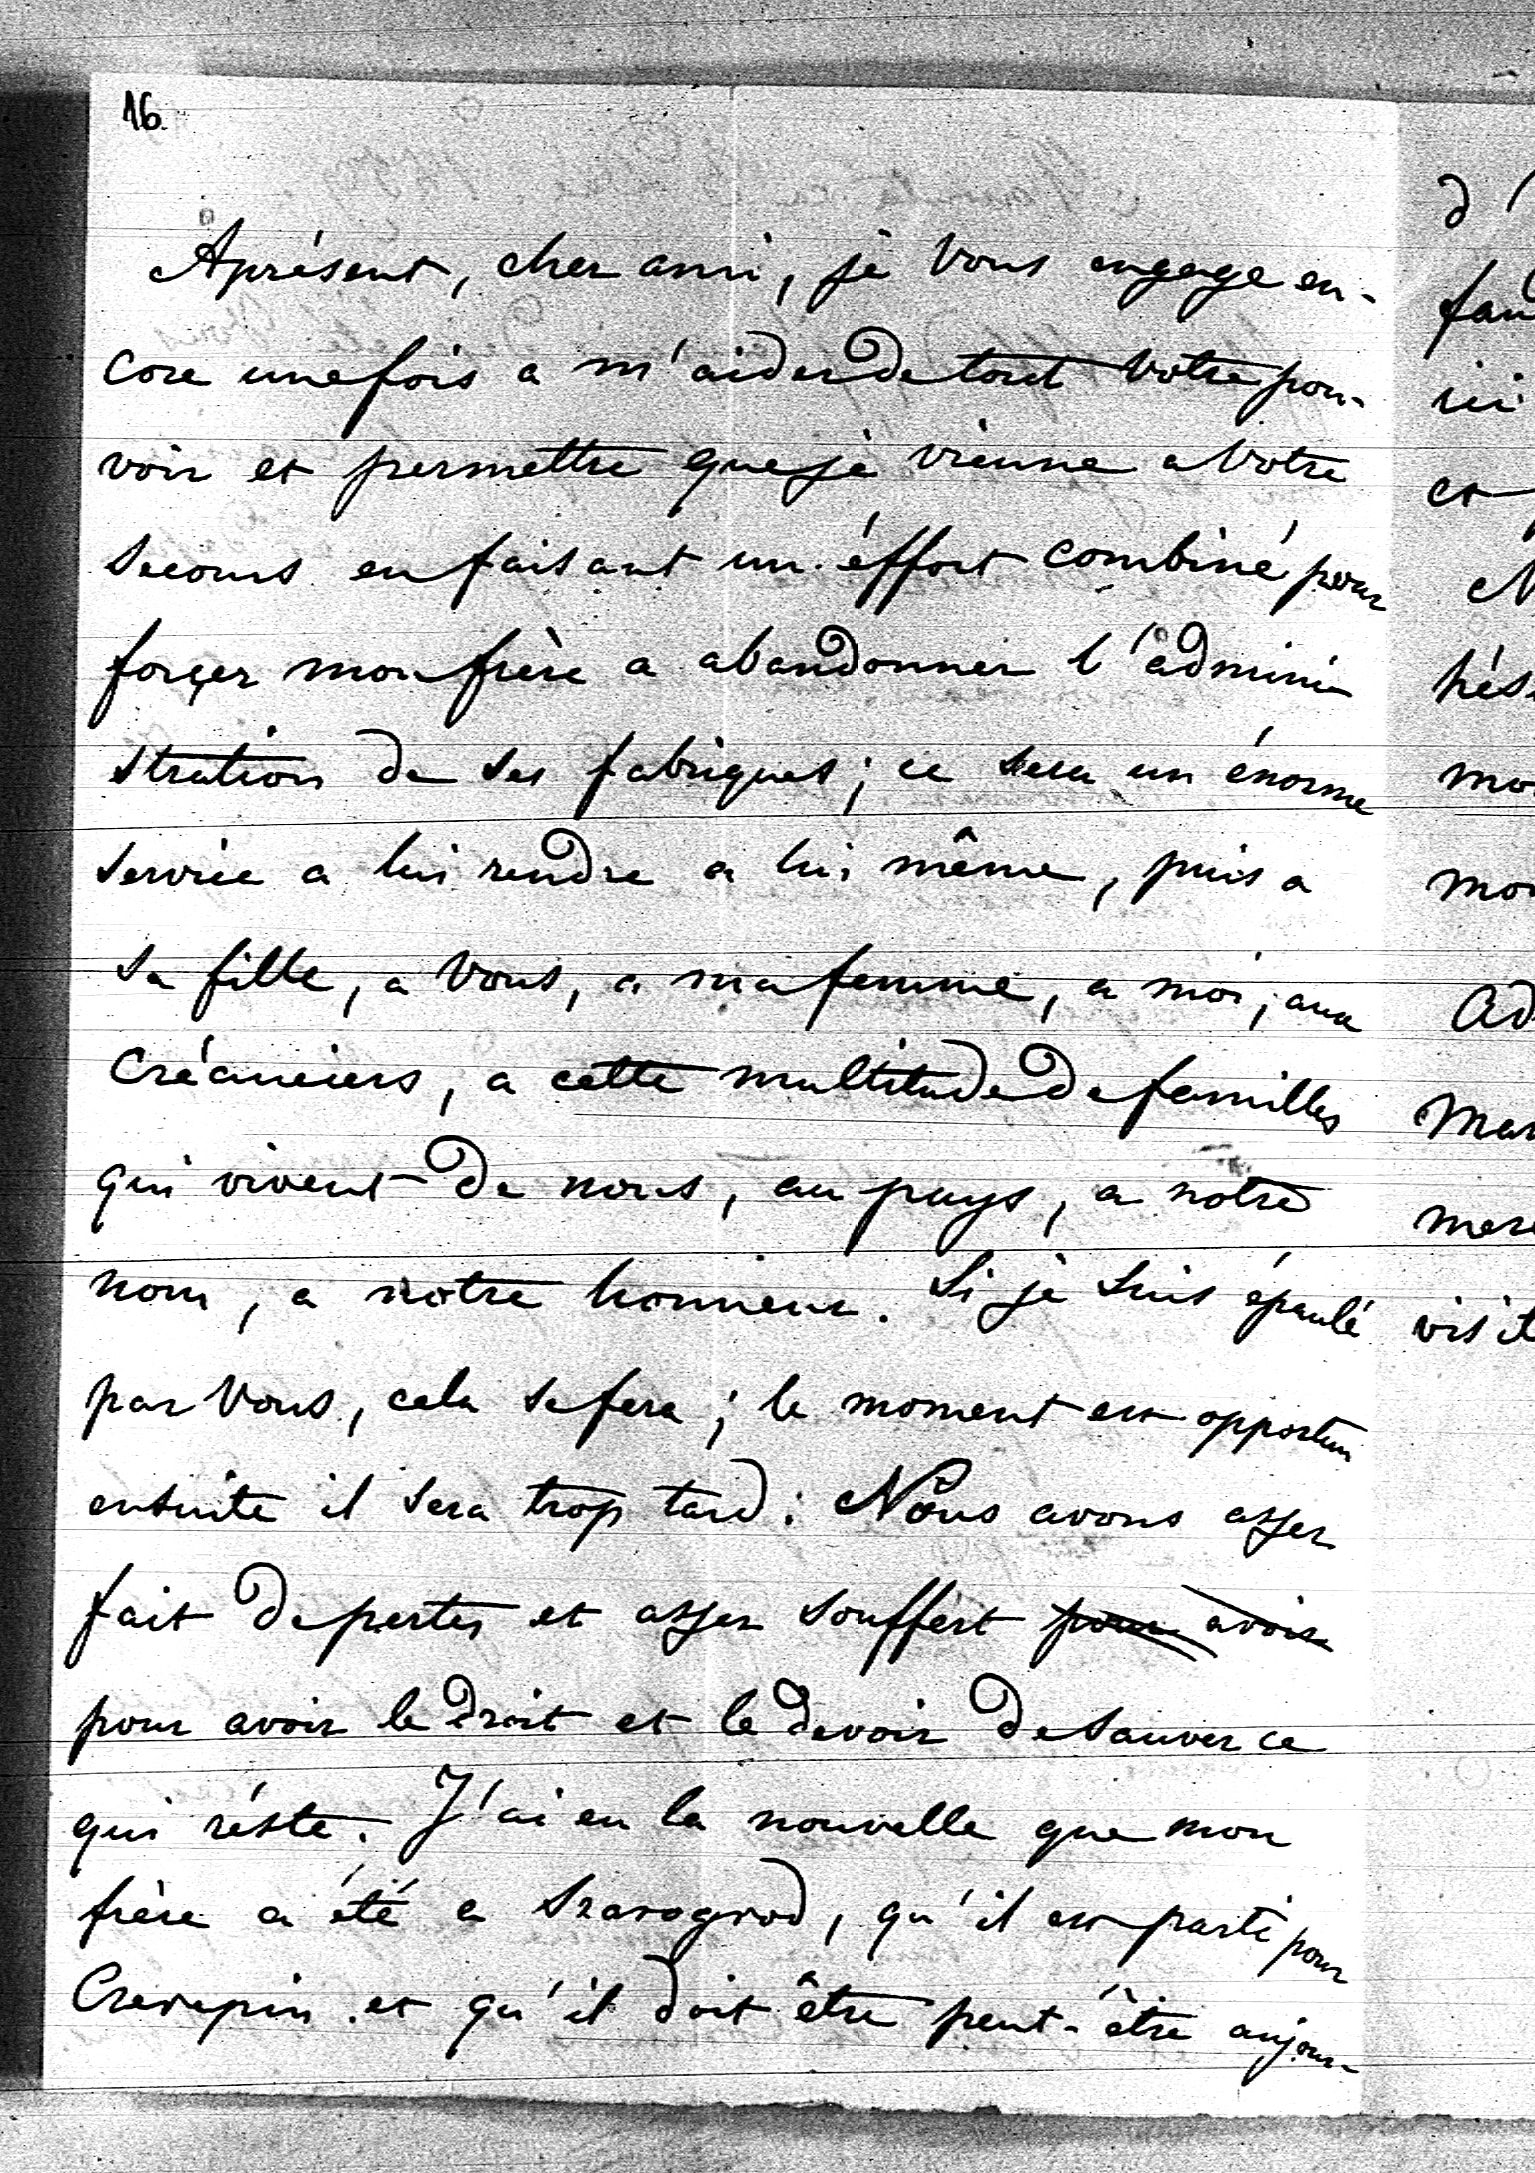 16
Aprésent, cher ami, je Vous engage en-
core unefois a m'aider de tout Votre pou-
voir et permettre que je vienne a Votre
secours en faisant un éffort combiné pour
forçer mon frère a abandonner l'admini-
stration de ses fabriques; ce sera un énorme
service a lui rendre a lui même, puis a
sa fille, a Vous, a ma femme, a moi, aux
Créanciers, a cette multitude de familles
qui vivent de nous, au pays, a notre
nom, a notre honneur. Si je suis épaulé
par Vous, cela se fera; le moment est opportun
ensuite il sera trop tard: Nous avons assez
fait de pertes et assez souffert pour avoir
pour avoir le droit et le devoir de sauver ce
qui réste. J'ai eu la nouvelle que mon
frère a été a Szarogrod, qu'il est parti pour
Czerepin et qu'il doit être peut-être aujour-